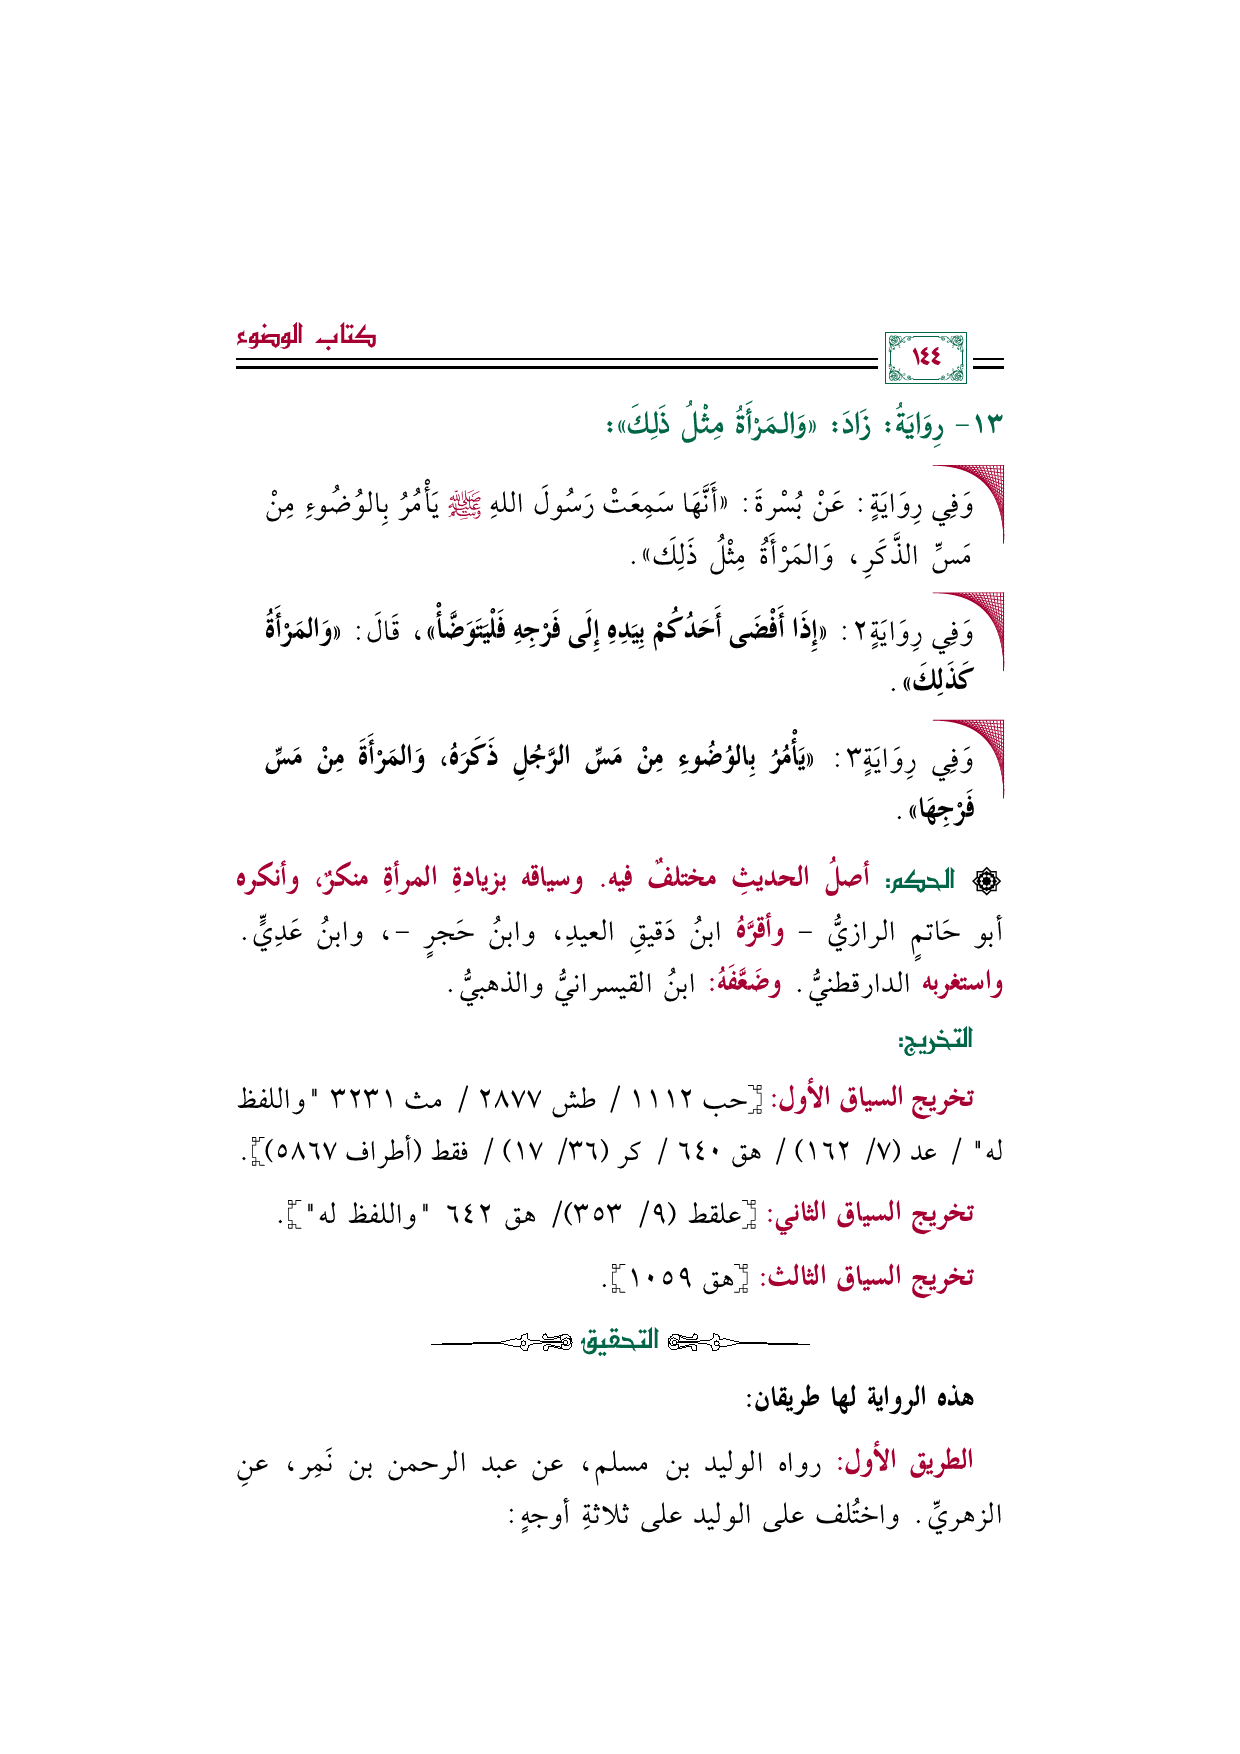 كتاب الوضوء
١٤٤
١٣- رِوَايَةُ: زَادَ: «وَالمَرْأَةُ مِثْلُ ذَلِكَ»:
وَفِي رِوَايَةٍ: عَنْ بُسْرةَ: «أَنَّهَا سَمِعَتْ رَسُولَ اللهِ ﷺ يَأْمُرُ بِالوُضُوءِ مِنْ
مَسِّ الذَّكَرِ، وَالمَرْأَةُ مِثْلُ ذَلِكَ».
وَفِي رِوَايَةٍ٢: «إِذَا أَفْضَى أَحَدُكُمْ بِيَدِهِ إِلَى فَرْجِهِ فَلْيَتَوَضَّأْ»، قَالَ: «وَالمَرْأَةُ
كَذَلِكَ».
وَفِي رِوَايَةٍ٣: «يَأْمُرُ بِالوُضُوءِ مِنْ مَسِّ الرَّجُلِ ذَكَرَهُ، وَالمَرْأَةَ مِنْ مَسِّ
فَرْجِهَا».
الحكم: أصلُ الحديثِ مختلفٌ فيه. وسياقه بزيادةِ المرأةِ منكرٌ، وأنكره
أبو حَاتمٍ الرازيُّ - وأقرَّهُ ابنُ دَقيقِ العيدِ، وابنُ حَجرٍ -، وابنُ عَدِيٍّ.
واستغربه الدارقطنيُّ. وضَعَّفَهُ: ابنُ القيسرانيُّ والذهبيُّ.
التخريج:
تخريج السياق الأول: [حب ١١١٢ / طش ٢٨٧٧ / مث ٣٢٣١ "واللفظ
له" / عد (٧/ ١٦٢) / هق ٦٤٠ / كر (٣٦/ ١٧) / فقط (أطراف ٥٨٦٧)].
تخريج السياق الثاني: [علقط (٩/ ٣٥٣)/ هق ٦٤٢ "واللفظ له"].
تخريج السياق الثالث: [هق ١٠٥٩].
التحقيق
هذه الرواية لها طريقان:
الطريق الأول: رواه الوليد بن مسلم، عن عبد الرحمن بن نَمِر، عنِ
الزهريِّ. واختُلف على الوليد على ثلاثةِ أوجهٍ: